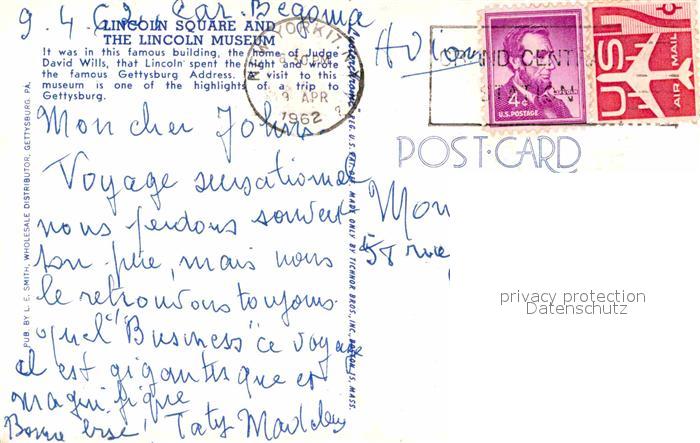 9.4.62.
LINCOLN SQUARE AND
THE LINCOLN MUSEUM
It was in this famous building, the home of Judge
David Wills, that Lincoln spent the night and wrote
the famous Gettysburg Address. A visit to this
museum is one of the highlights of a trip to
Gettysburg.
Mon cher Johns
Voyage sensationnel
nous perdons souvent
ton père, mais nous
le retrouvons toujours.
quel "Business" ce voyage
il est gigantesque et
magnifique
Bonne
PUB. BY L. E. SMITH, WHOLESALE DISTRIBUTOR, GETTYSBURG, PA.
NEW YORK
9 30 PM
9 APR
1962
REG. U. S. PAT. OFF. MADE ONLY BY TICHNOR BROS., INC., BOSTON, 15, MASS.
Avion
GRAND CENTRAL
STATION
4¢
U.S. POSTAGE
US
7¢
AIR MAIL
POST-CARD
Mon
58 rue
privacy protection
Datenschutz